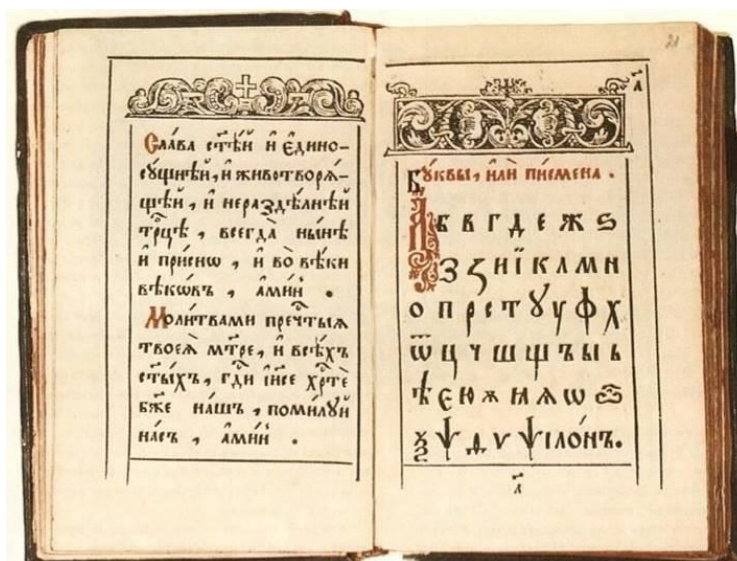 Сла́ва ст҃ѣ́й и҆ є҆дино-
сꙋ́щнѣй, и҆ животворѧ́-
щей, и҆ нераздѣ́лнѣй
трⷪ҇цѣ, всегда̀ ны́нѣ
и҆ при́снѡ, и҆ во̀ вѣ́ки
вѣкѡ́въ, а҆ми́нь.
Моли́твами преч҃тыѧ
твоеѧ̀ мт҃ре, и҆ всѣ́хъ
ст҃ы́хъ, гдⷭ҇и і҆и҃се хрⷭ҇тѐ
бж҃е на́шъ, поми́лꙋй
на́съ, а҆ми́нь.
21
а҃
Бꙋ́квы, и҆лѝ писмена̀.
А б в г д е ж ѕ
З ꙁ и ї к л м н
о п р с т ꙋ у ф х
ѿ ц ч ш щ ъ ы ь
ѣ є ю ж ѧ ꙗ ѡ
ѯ ѱ ѵ ѱїло́нъ.